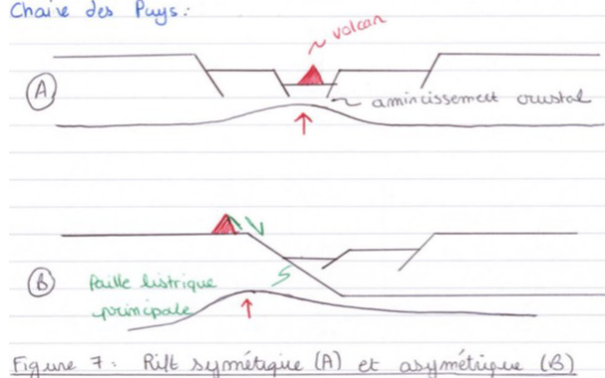 Chaîne des Puys:
~ volcan
A
~ amincissement crustal
B
Faille listrique
principale
Figure 7: Rift symétrique (A) et asymétrique (B)